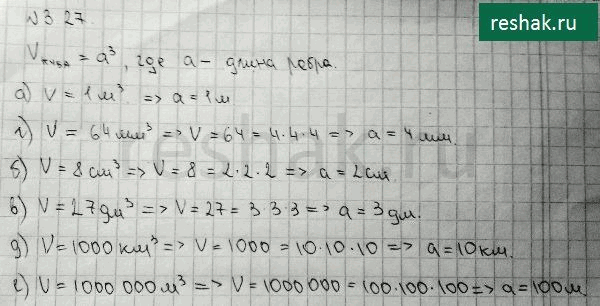 reshak.ru
№327.
Vкуба = a³, где a – длина ребра.
а) V = 1 м³ => a = 1 м
г) V = 64 мм³ => V = 64 = 4·4·4 => a = 4 мм.
б) V = 8 см³ => V = 8 = 2·2·2 => a = 2 см.
в) V = 27 дм³ => V = 27 = 3·3·3 => a = 3 дм.
д) V = 1000 км³ => V = 1000 = 10·10·10 => a = 10 км.
е) V = 1000 000 м³ => V = 1000 000 = 100·100·100 => a = 100 м
reshak.ru